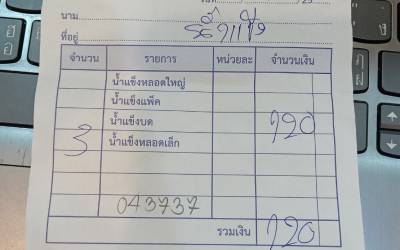 นาม
ที่อยู่
จำนวน รายการ หน่วยละ จำนวนเงิน
น้ำแข็งหลอดใหญ่
น้ำแข็งแพ็ค
น้ำแข็งบด 120
3 น้ำแข็งหลอดเล็ก
043737
รวมเงิน 120